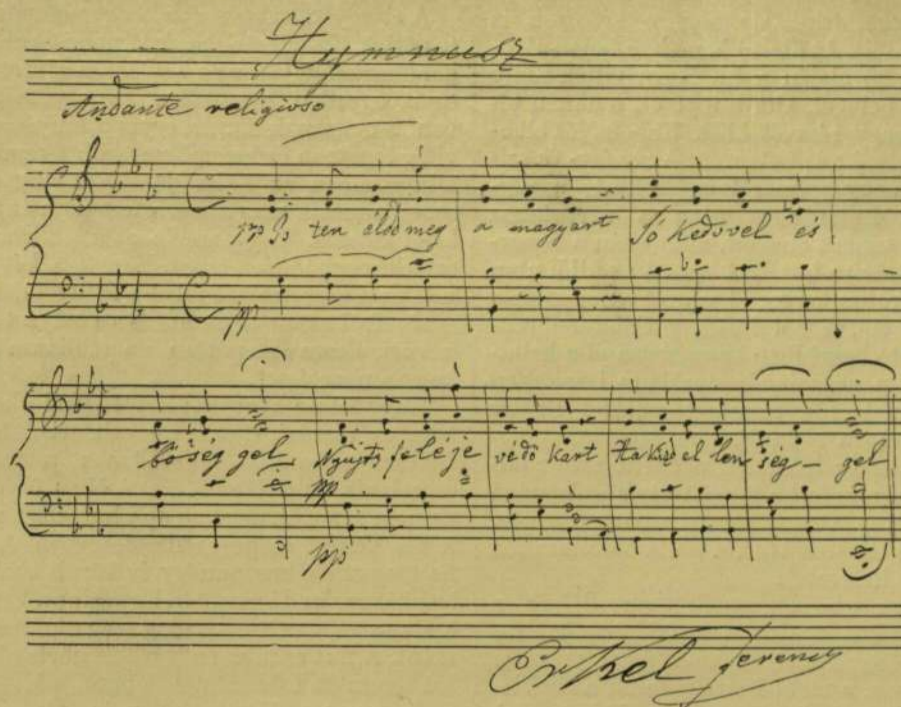 Hymnusz
Andante religioso
pp Is ten áldd meg a magyart Jó kedvvel és
pp
bő ség gel Nyújts feléje védő kart Ha küzd el len ség – gel
pp
pp
Erkel Ferencz